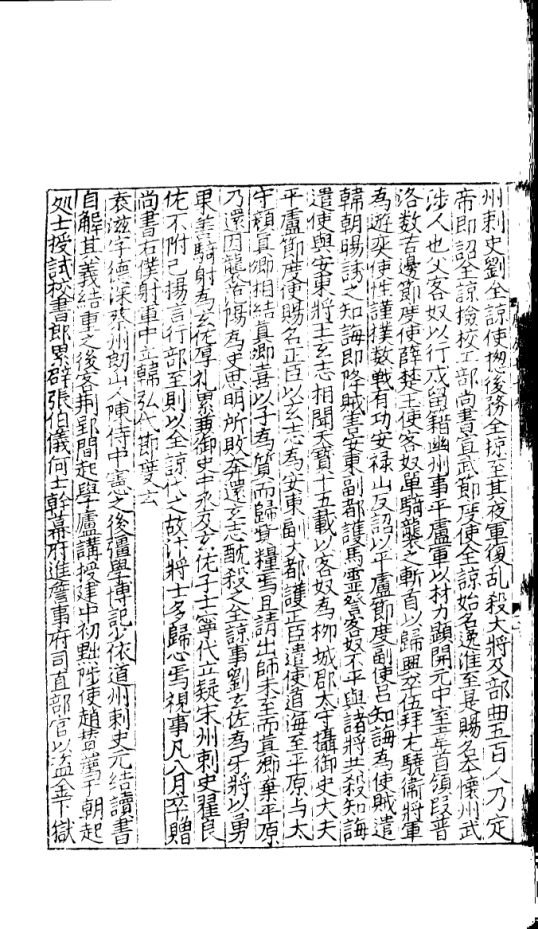 州刺史劉全諒使摠後務全諒至其夜軍復乱殺大將及部曲五百人乃定
帝即詔全諒撿挍工部尚書宣武節度使全諒始名逸淮至是賜名本懷州武
渉人也父客奴以行戍留籍幽州事平盧軍以材力顯開元中室韋首領段普
洛数苦邊節度使薛楚玉使客奴單騎襲之斬首以歸興卒伍拜左驍衛將軍
為遊奕使性謹撲数戰有功安禄山反詔以平盧節度副使吕知誨為使賊遣
韓朝暘誘之知誨即降賊害安東副都護馬靈詧客奴不平與諸將共殺知誨
遣使與安東將王玄志相聞天寶十五載以客奴為柳城郡太守攝御史大夫
平盧節度使賜名正臣以玄志為安東副大都護正臣遣使道海至平原与太
守顔真卿相結真卿喜以子為質而歸貲糧焉且請出師未至而真卿棄平原
乃還因襲范陽為史思明所敗奔還玄志酖殺之全諒事劉玄佐為牙將以勇
果善騎射為玄佐厚礼累兼御史中丞及玄佐子士寧代立疑宋州刺史翟良
佐不附己揚言行部至則以全諒代之故汴將士多歸心焉視事凡八月卒贈
尚書右僕射軍中立韓弘代節度云
袁滋字徳深蔡州朗山人陳侍中憲之後彊學博記少依道州刺史元結讀書
自解其義結重之後客荆郢間起學廬講授建中初黜陟使趙賛薦于朝起
処士授試校書郎累辟張伯儀何士幹幕府進詹事府司直部官以盗金下獄